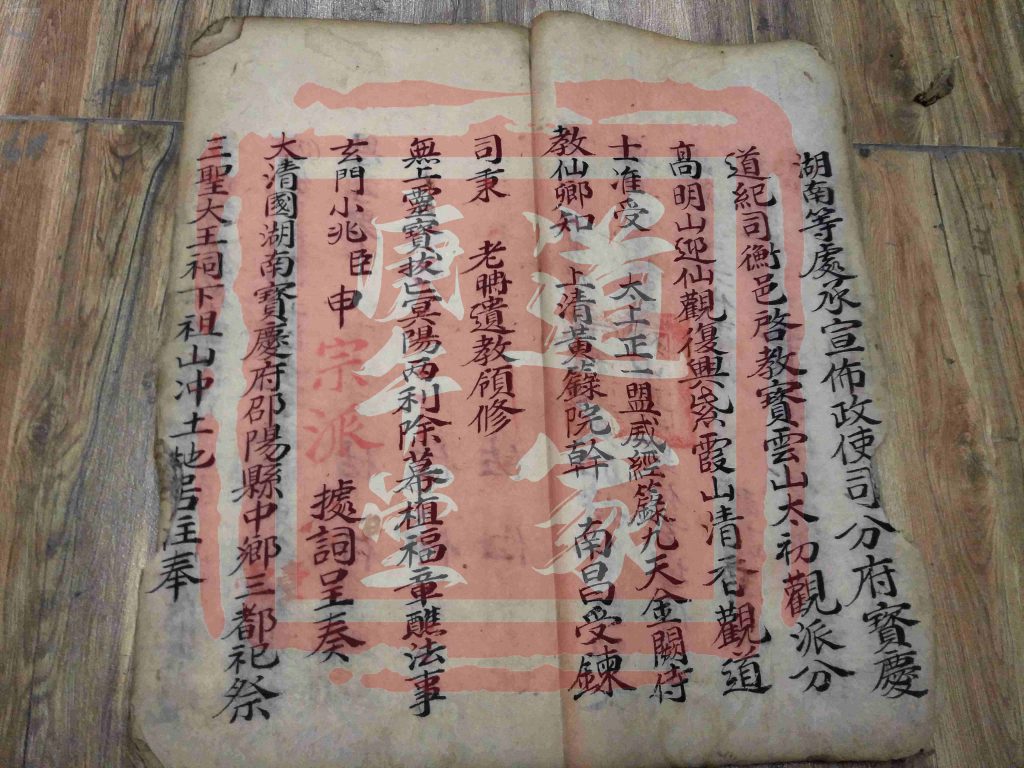 湖南等處承宣佈政使司分府寶慶
道紀司衡邑啓教寶雲山太初觀派分
高明山迎仙觀復興紫霞山清香觀道
士准受 太上正一盟威經籙九天金闕侍
教仙卿知 上清黃籙院幹 南昌受鍊
司秉 老聃遺教領修
無上靈寶拔亡冥陽两利除幕植福章醮法事
玄門小兆臣申 據詞呈奏
大清國湖南寶慶府邵陽縣中鄉三都祀祭
三聖大王祠下祖山冲土地居住奉
宗派
道家
唐全堂